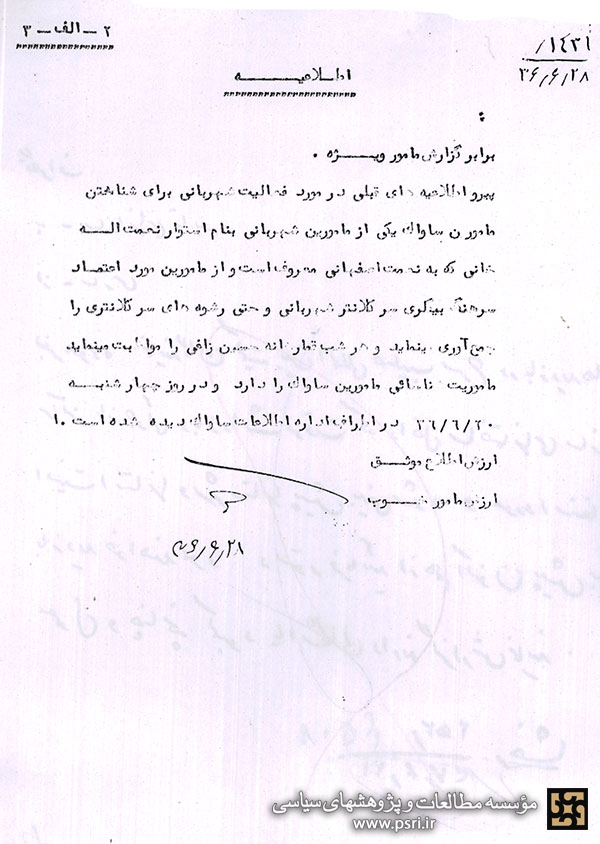 ۲ - الف - ۳
۱۴۳۱/
۳۶/۶/۲۸
اطلاعیه
:
برابر گزارش مامور ویژه .
پیرو اطلاعیه های قبلی در مورد فعالیت شهربانی برای شناختن
مامورن ساواک یکی از مامورین شهربانی بنام استوار نعمت الله
خانی که به نعمت اصفهانی معروف است و از مامورین مورد اعتماد
سرهنگ بیگلری سر کلانتر شهربانی و حتی رشوه های سر کلانتری را
جمع آوری مینماید و هر شب قمارخانه حسین زاغی را مواظبت مینماید
ماموریت شناسائی مامورین ساواک را دارد و در روز چهار شنبه
۳۶/۶/۲۰ در اطراف اداره اطلاعات ساواک دیده شده است .ا
ارزش اطلاع موثق
ارزش مامور خوب
۳۶/۶/۲۸
مؤسسه مطالعات و پژوهشهای سیاسی
www.psri.ir